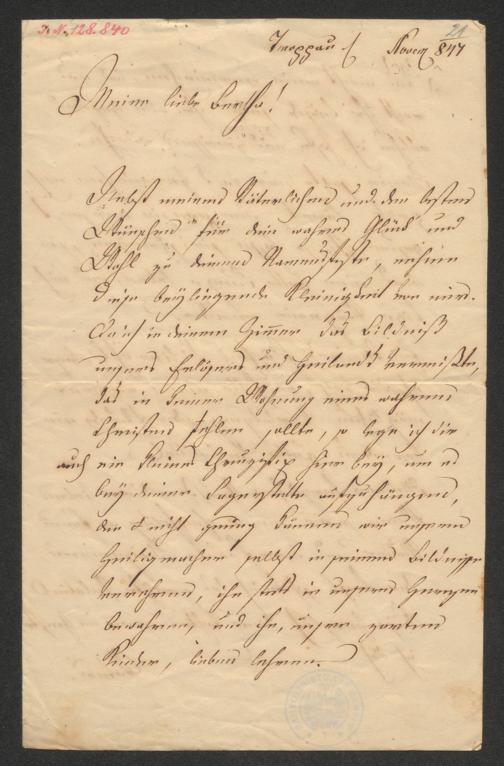 I. N. 128.840
21
Troppau / Novem 847
Meine liebe Bertha!
Nebst meinem Väterlichen und den besten
Wünschen für dein wahres Glück und
Wohl zu deinem Namensfeste, nehme
diese beyliegende Kleinigkeit von mir.
Da ich in deinem Zimmer das Bildniß
unseres Erlösers und Heiland's vermißte,
das in keiner Wohnung eines wahren
Christen fehlen sollte, so lege ich dir
auch ein kleines Cruzifix hier bey, um es
bey deiner Lagerstätte aufzuhängen,
den nicht genug können wir unseren
Seligmacher selbst in seinem Bildnisse
verehren, ihn stets in unseren Herzen
bewahren, und ihn, unsere zarten
Kinder, lieben lehren.